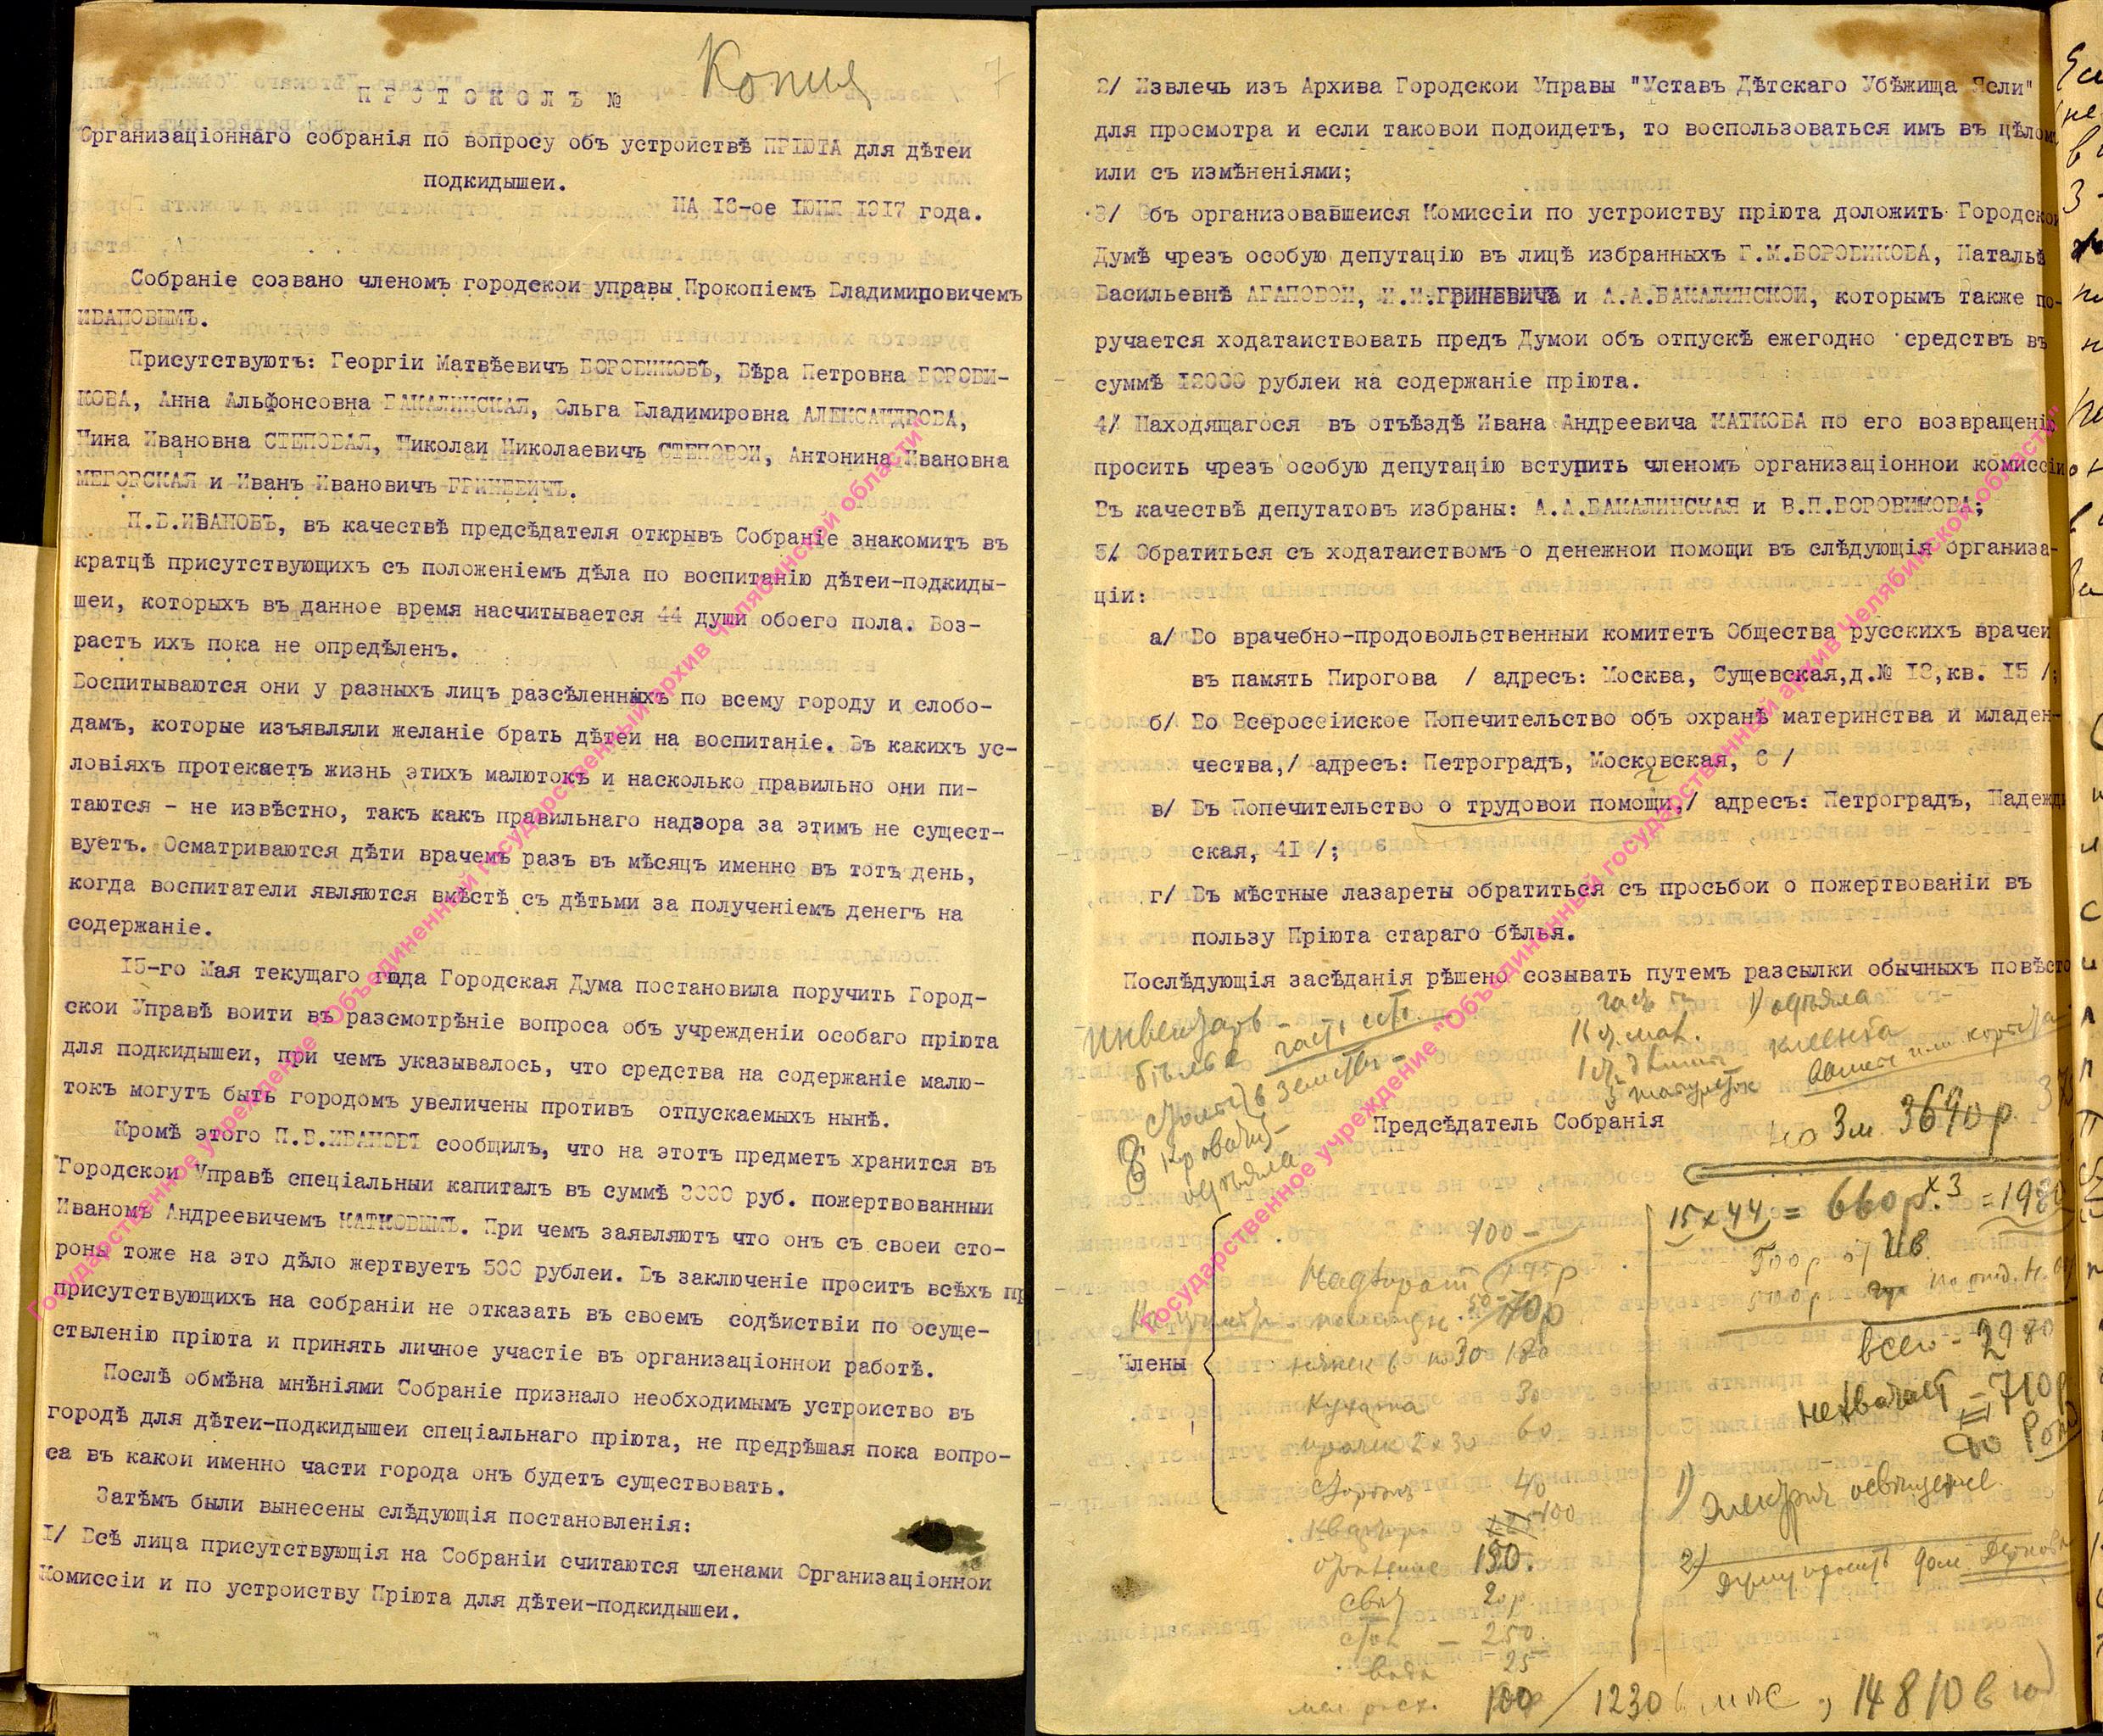 Копия
7
ПРОТОКОЛЪ №
Организаціоннаго собранія по вопросу объ устроиствѣ ПРІЮТА для дѣтеи
подкидышеи.
НА 16-ое ІЮНЯ 1917 года.
Собраніе созвано членомъ городскои управы Прокопіемъ Владимировичемъ
ИВАНОВЫМЪ.
Присутствуютъ: Георгіи Матвѣевичъ БОРОВИКОВЪ, Вѣра Петровна БОРОВИ-
КОВА, Анна Альфонсовна БАКАЛИНСКАЯ, Ольга Владимировна АЛЕКСАНДРОВА,
Нина Ивановна СТЕПОВАЯ, Николаи Николаевичъ СТЕПОВОИ, Антонина Ивановна
МЕГОРСКАЯ и Иванъ Ивановичъ ГРИНЕВИЧЪ.
П.В.ИВАНОВЪ, въ качествѣ предсѣдателя открывъ Собраніе знакомитъ въ
кратцѣ присутствующихъ съ положеніемъ дѣла по воспитанію дѣтеи-подкиды-
шеи, которыхъ въ данное время насчитывается 44 души обоего пола. Воз-
растъ ихъ пока не опредѣленъ.
Воспитываются они у разныхъ лицъ разсѣленныхъ по всему городу и слобо-
дамъ, которые изъявляли желаніе брать дѣтеи на воспитаніе. Въ какихъ ус-
ловіяхъ протекаетъ жизнь этихъ малютокъ и насколько правильно они пи-
таются - не извѣстно, такъ какъ правильнаго надзора за этимъ не сущест-
вуетъ. Осматриваются дѣти врачемъ разъ въ мѣсяцъ именно въ тотъ день,
когда воспитатели являются вмѣстѣ съ дѣтьми за полученіемъ денегъ на
содержаніе.
15-го Мая текущаго года Городская Дума постановила поручить Город-
скои Управѣ воити въ разсмотрѣніе вопроса объ учрежденіи особаго пріюта
для подкидышеи, при чемъ указывалось, что средства на содержаніе малю-
токъ могутъ быть городомъ увеличены противъ отпускаемыхъ нынѣ.
Кромѣ этого П.В.ИВАНОВЪ сообщилъ, что на этотъ предметъ хранится въ
Городскои Управѣ спеціальныи капиталъ въ суммѣ 3000 руб. пожертвованныи
Иваномъ Андреевичемъ КАТКОВЫМЪ. При чемъ заявляютъ что онъ съ своеи сто-
роны тоже на это дѣло жертвуетъ 500 рублеи. Въ заключеніе проситъ всѣхъ пр
присутствующихъ на собраніи не отказать въ своемъ содѣиствіи по осуще-
ствленію пріюта и принять личное участіе въ организаціоннои работѣ.
Послѣ обмѣна мнѣніями Собраніе признало необходимымъ устроиство въ
городѣ для дѣтеи-подкидышеи спеціальнаго пріюта, не предрѣшая пока вопро-
са въ какои именно части города онъ будетъ существовать.
Затѣмъ были вынесены слѣдующія постановленія:
I/ Всѣ лица присутствующія на Собраніи считаются членами Организаціоннои
Комиссіи и по устроиству Пріюта для дѣтеи-подкидышеи.
Государственное учреждение "Объединенный государственный архив Челябинской области"
2/ Извлечь изъ Архива Городскои Управы "Уставъ Дѣтскаго Убѣжища Ясли"
для просмотра и если таковои подоидетъ, то воспользоваться имъ въ цѣломъ
или съ измѣненіями;
3/ Объ организовавшеися Комиссіи по устроиству пріюта доложить Городскои
Думѣ чрезъ особую депутацію въ лицѣ избранныхъ Г.М.БОРОВИКОВА, Натальѣ
Васильевнѣ АГАПОВОИ, И.И.ГРИНЕВИЧА и А.А.БАКАЛИНСКОИ, которымъ также по-
ручается ходатаиствовать предъ Думои объ отпускѣ ежегодно средствъ въ
суммѣ 12000 рублеи на содержаніе пріюта.
4/ Находящагося въ отъѣздѣ Ивана Андреевича КАТКОВА по его возвращеніи
просить чрезъ особую депутацію вступить членомъ организаціоннои комиссіи
Въ качествѣ депутатовъ избраны: А.А.БАКАЛИНСКАЯ и В.П.БОРОВИКОВА;
5/ Обратиться съ ходатаиствомъ о денежнои помощи въ слѣдующія организа-
ціи:
а/ Во врачебно-продовольственныи комитетъ Общества русскихъ врачеи
въ память Пирогова / адресъ: Москва, Сущевская,д.№ 18,кв. 15 /;
б/ Во Всероссіиское Попечительство объ охранѣ материнства и младен-
чества,/ адресъ: Петроградъ, Московская, 6 /
в/ Въ Попечительство о трудовои помощи,/ адресъ: Петроградъ, Надежди
ская, 41 /;
г/ Въ мѣстные лазареты обратиться съ просьбои о пожертвованіи въ
пользу Пріюта стараго бѣлья.
Послѣдующія засѣданія рѣшено созывать путемъ разсылки обычныхъ повѣсто
Инвентарь
бѣлье
1) одѣяла
клеенка
5 табуреток
кровати
одѣяла
Предсѣдатель Собранія
на 3 м 3690 р.
15 x 44 = 660 р. x 3 = 1980
500 р от Ив.
500 р
всего - 2980
нехватает = 710 р
Члены
400 -
70 р
нянек 6 по 30 180
Кухарка 30
прачек 2 x 30 60
40
Квартира 100
отопление 150.
свет 20 р.
стол - 250.
вода 25
мел расх. 100 / 1230 в мес , 14810 в год
1) Электрич освѣщение
2)
Государственное учреждение "Объединенный государственный архив Челябинской области"